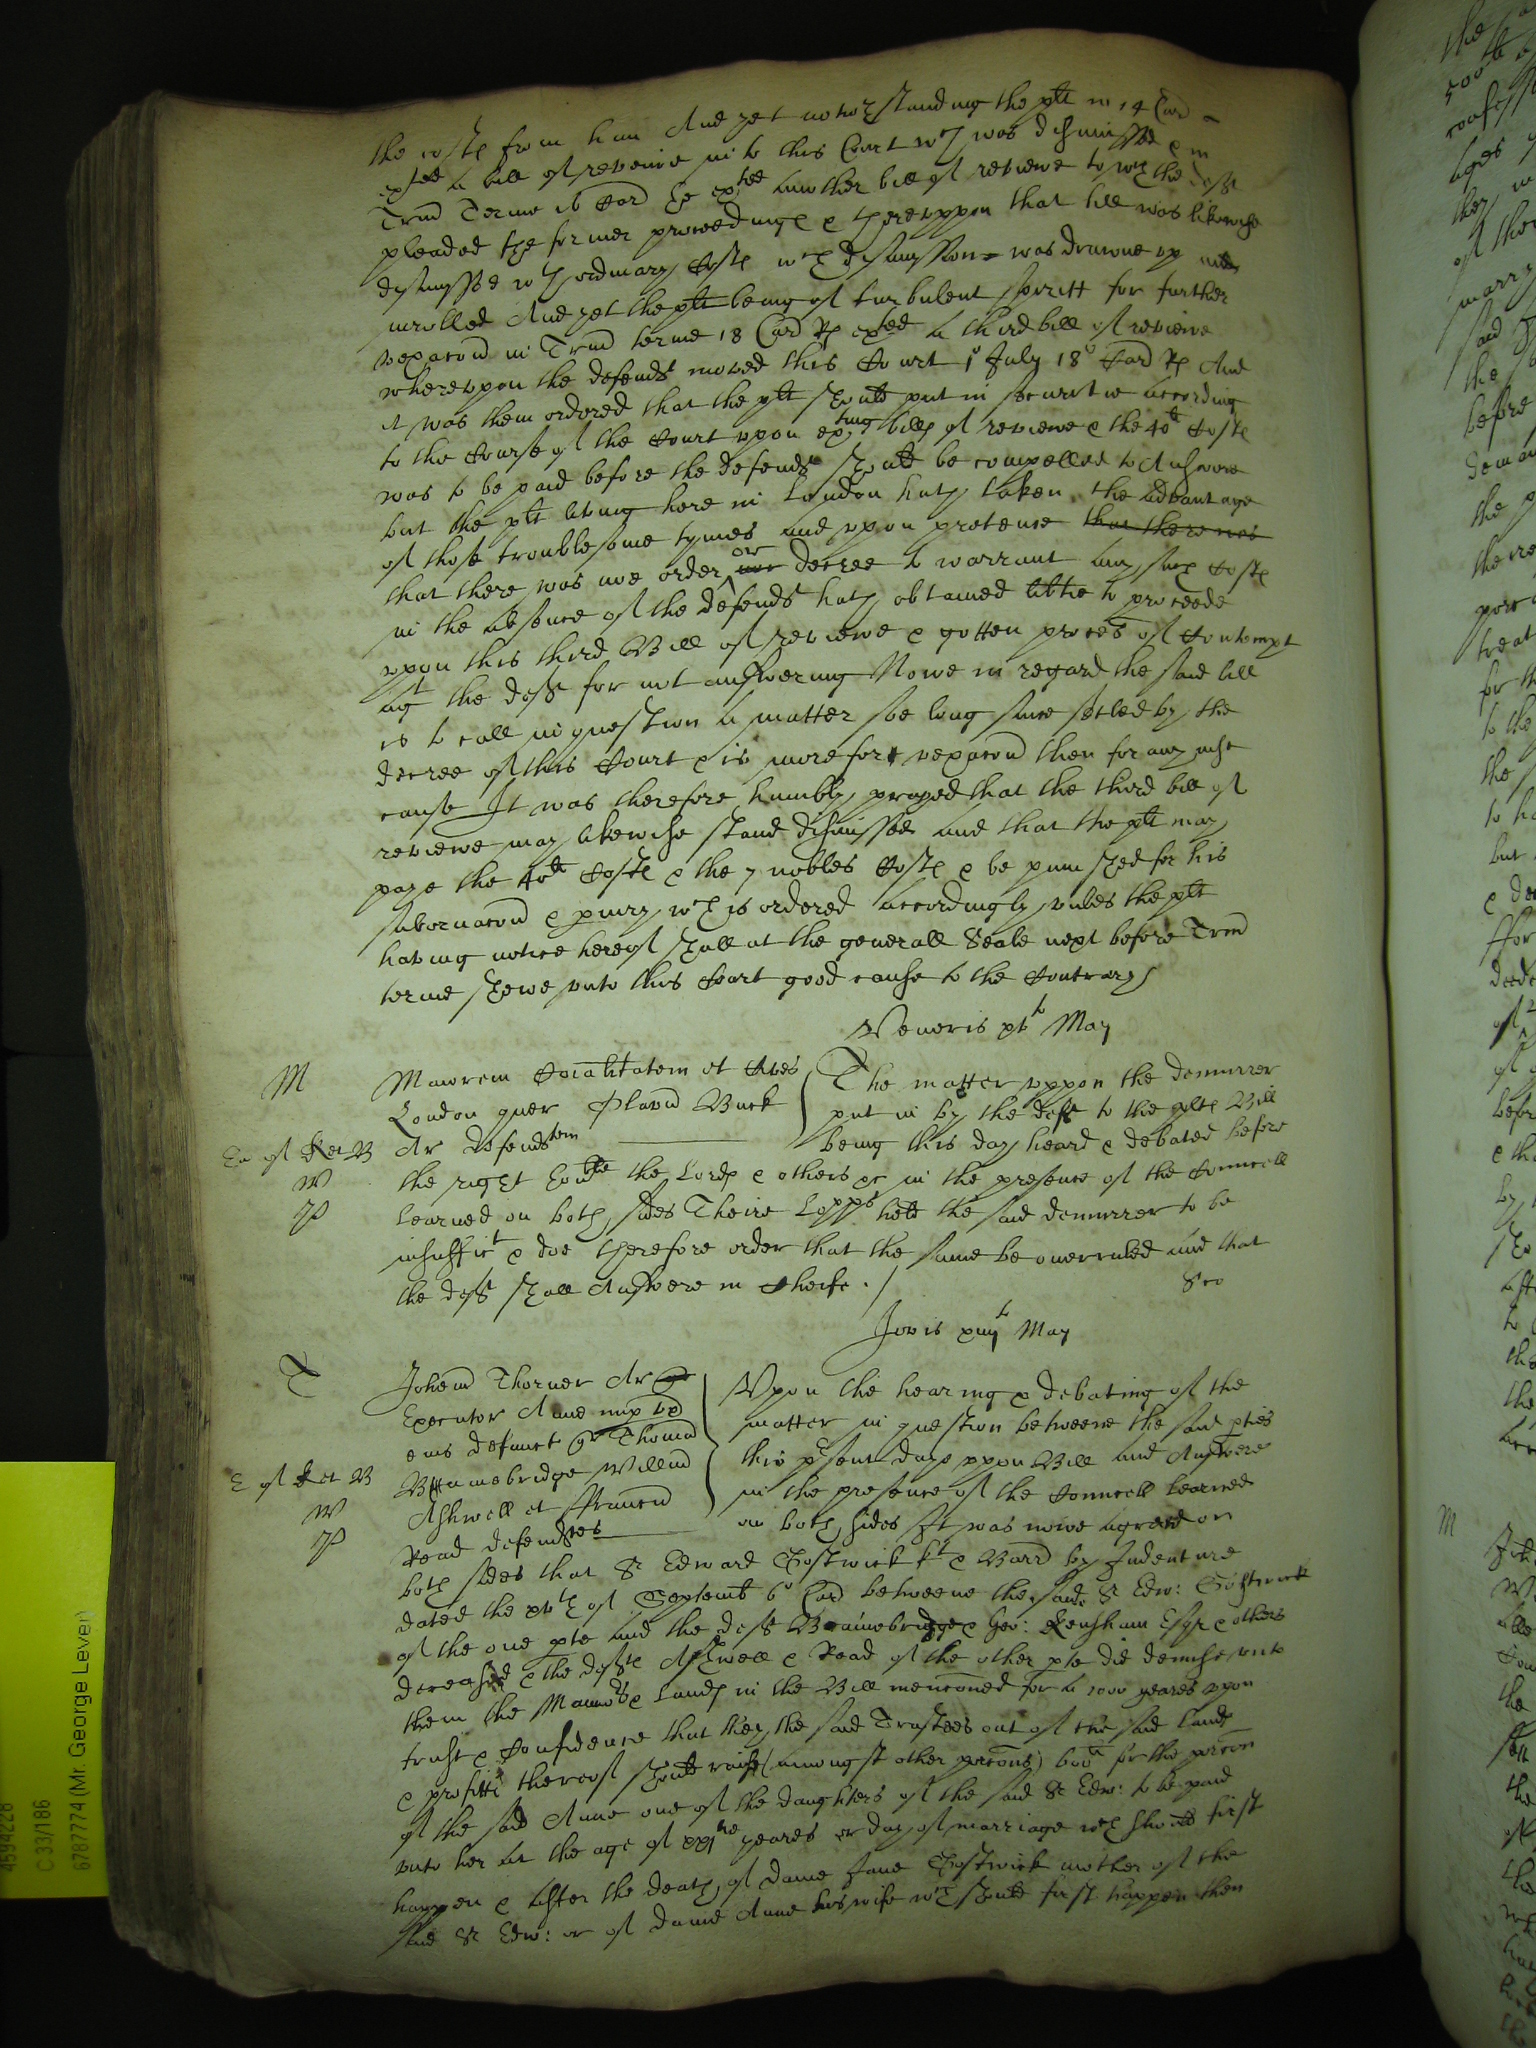 the costs from him And yet notwthstanding the plt in 14 Card
exhted a bill of reveiwe into this Court wch was dismissed & in
Trin Terme 16 Card he exhted another bill of reveiwe to wch the defts
pleaded the former proceedings & thereuppon that bill was likewise
dismissed wth ordinary Costs wch dismission was drawne up
inrolled And yet the plt being of turbulent spiritt for further
vexacon in Trin terme 18 Card Rs exhted a third bill of reveiwe
whereupon the defendts moved this Court 1o July 18o Card Rs And
it was then ordered that the plt should put in securitie according
to the Course of the Court upon exhting bills of reveiwe & the 40li Costs
was to be paid before the defendts should be compelled to Answere
but the plt living here in London hath taken the advantage
of those troublesome tymes and upon pretence that there was
that there was noe order or nor decree to warrant any such Costs
in the absence of the defendts hath obtained libtie to proceede
upon this third Bill of reveiwe & gotten proces of Contempt
agt the defts for not answering Nowe in regard the said bill
is to call in question a matter soe long since setled by the
decree of this Court & is more for vexacon then for any just
cause It was therefore humbly prayed that the third bill of
reveiwe may likewise stand dismissed and that the plt may
paye the 40li Costs & the 7 nobles Costs & be punished for his
subornacon & periury wch is ordered accordingly unles the plt
having notice hereof shall at the generall Seale next before Trin
terme shewe unto this Court good cause to the Contrary
Veneris May
M Maiorem Coialitatem et Cives The matter uppon the demurrer
London quer Buck put in by the deft to the plts Bill
Ar Defendtem being this day heard & debated before
the right honble the Lords & others &c in the presence of the Councell
W
learned on both sides Theire Lopps held the said demurrer to be
insuffict & doe therefore order that the same be overruled and that
the deft shall Answere in Cheife
Jovis May
T Johem Thorner Ar Upon the hearing & debating of the
Executor Anne nup matter in question betweene the said pties
eius defunct Thomam this psent daye uppon Bill and Answere
Bainebridge Willm in the presence of the Councell learned
W Ashwell et ffranciscu on both sides It was nowe agreed on
Read defendtes
both sides that Sr Edward Gostwick kt & Barrt by Indenture
dated the of Septemb 6o Card betweene the said Sr Edw: Gostwick
of the one pte and the deft Bainebridge & Geo: Kensham Esqr & others
deceased & the defts Ashwell & Read of the other pte did demise unto
them the Mannors & lands in the Bill mencioned for a 1000 yeares upon
trust & Confidence that they the said Trustees out of the said lands
& profitts thereof should raise (amongst other porcons) 600li for the porcon
of the said Anne one of the daughters of the said Sr Edw: to be paid
unto her at the age of xxjtie yeares or day of marriage wch should first
happen & after the death of dame Jane Gostwick mother of the
said Sr Edw: or of dame Anne his wife wch should first happen then
4594228
C 33/186
6787774 (Mr. George Lever)